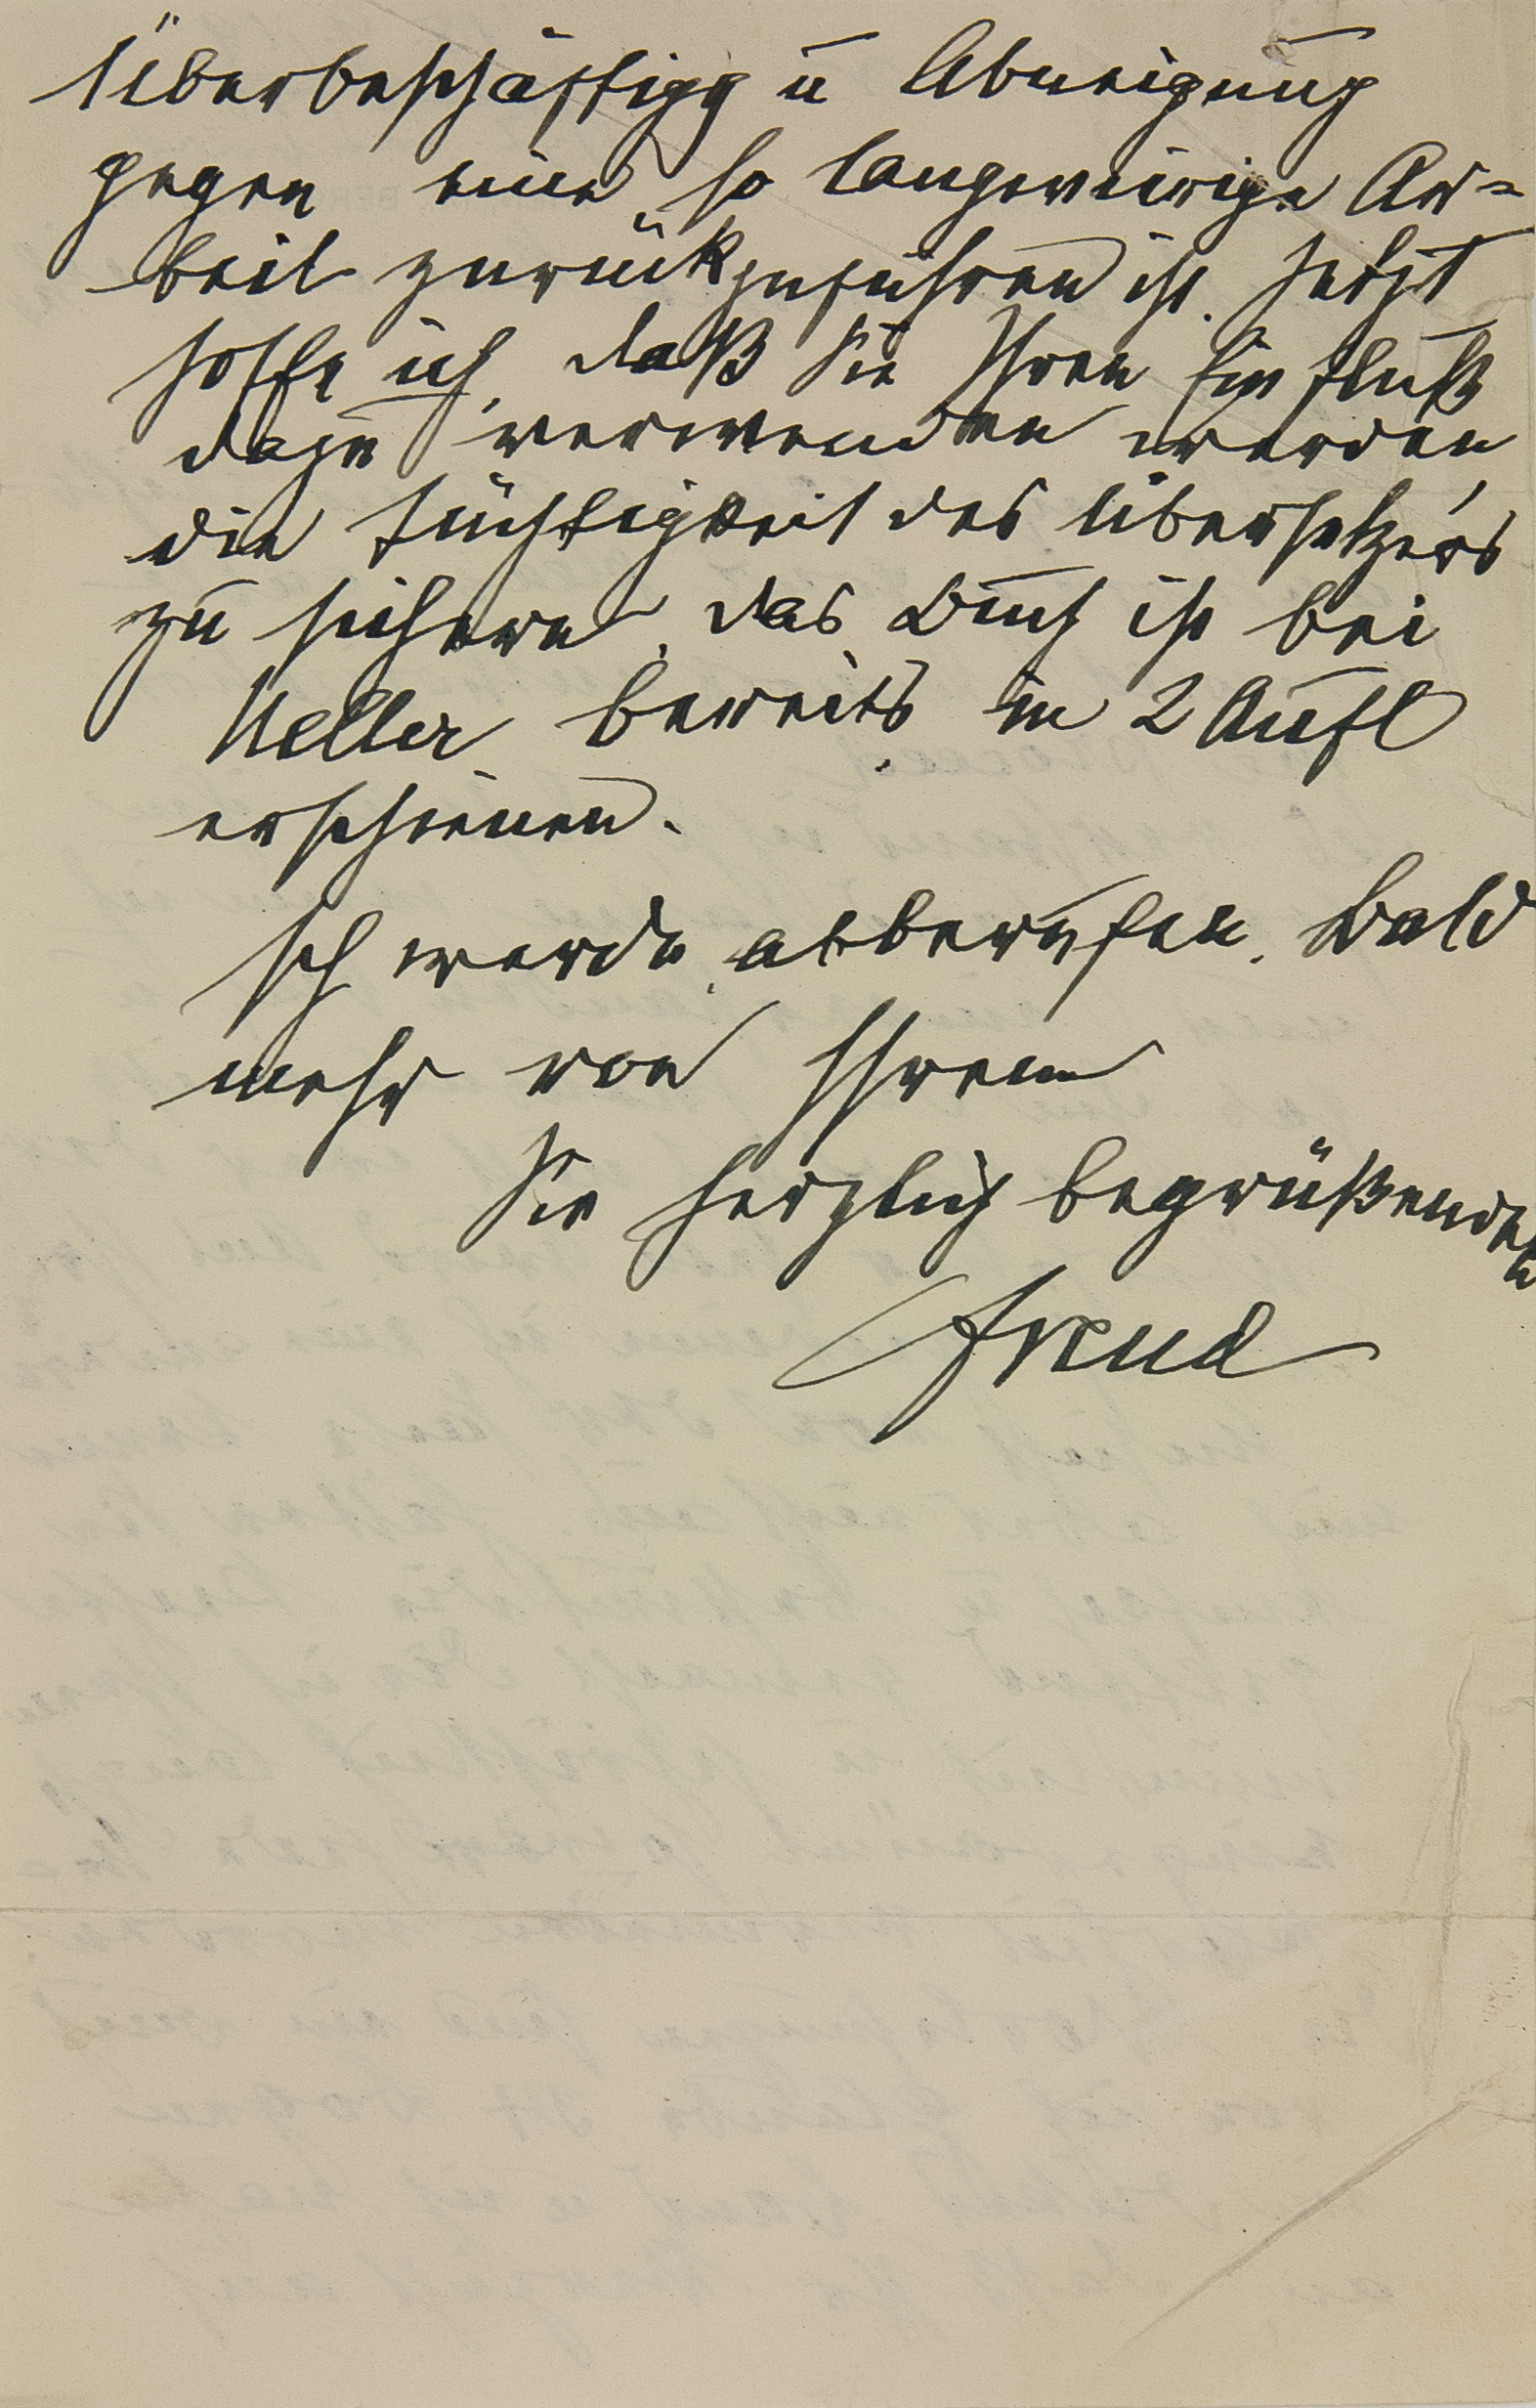 Überbeschäftigg u Abneigung
gegen eine so langwierige Ar=
beit zurückzuführen ist. Jetzt
hoffe ich, daß Sie Ihren Einfluß
dazu verwenden werden,
die Tüchtigkeit des Übersetzers
zu sichern. Das Buch ist bei
Heller bereits in 2 Aufl
erschienen.
Ich werde abberufen. Bald
mehr von Ihrem
Sie herzlich begrüßenden
Freud